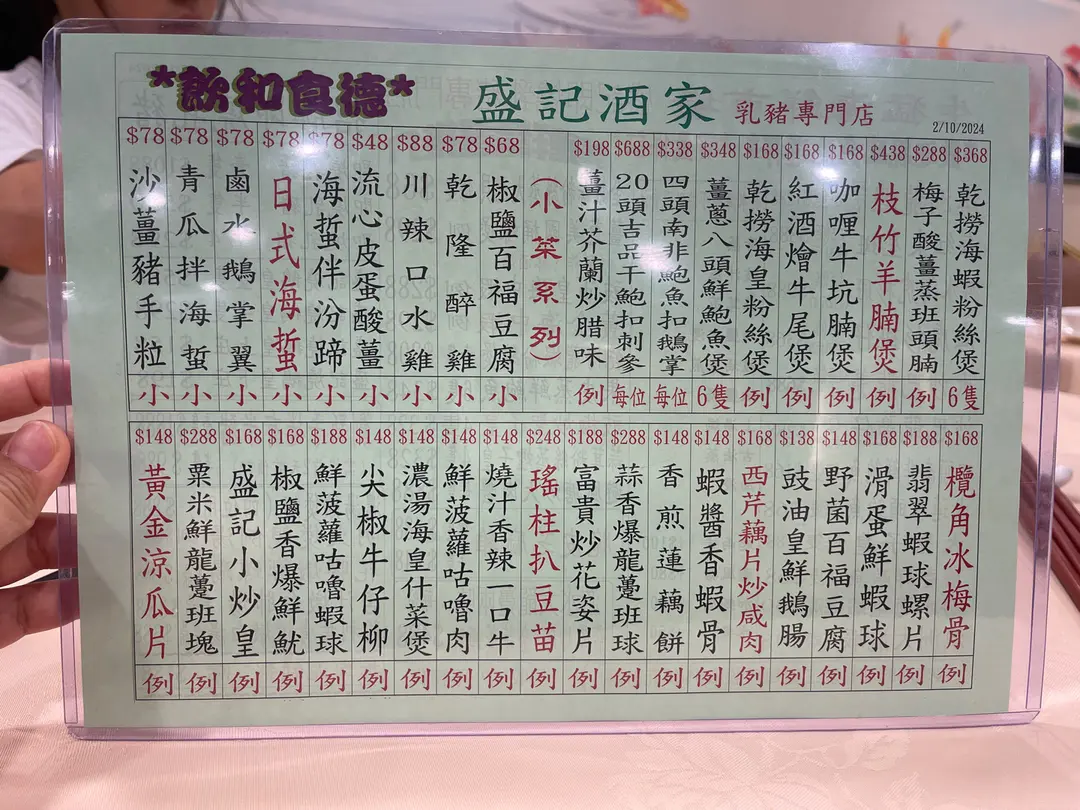 *飲和食德*
盛記酒家
乳豬專門店
2/10/2024
$368 乾撈海蝦粉絲煲 6隻
$288 梅子酸薑蒸班頭腩 例
$438 枝竹羊腩煲 例
$168 咖喱牛坑腩煲 例
$168 紅酒燴牛尾煲 例
$168 乾撈海皇粉絲煲 例
$348 薑蔥八頭鮮鮑魚煲 6隻
$338 四頭南非鮑魚扣鵝掌 每位
$688 20頭吉品干鮑扣刺參 每位
$198 薑汁芥蘭炒腊味 例
(小菜系列)
$68 椒鹽百福豆腐 小
$78 乾隆醉雞 小
$88 川辣口水雞 小
$48 流心皮蛋酸薑 小
$78 海蜇伴汾蹄 小
$78 日式海蜇 小
$78 鹵水鵝掌翼 小
$78 青瓜拌海蜇 小
$78 沙薑豬手粒 小
$168 欖角冰梅骨 例
$188 翡翠蝦球螺片 例
$168 滑蛋鮮蝦球 例
$148 野菌百福豆腐 例
$138 豉油皇鮮鵝腸 例
$168 西芹藕片炒咸肉 例
$148 蝦醬香蝦骨 例
$148 香煎蓮藕餅 例
$288 蒜香爆龍躉班球 例
$188 富貴炒花姿片 例
$248 瑤柱扒豆苗 例
$148 燒汁香辣一口牛 例
$148 鮮菠蘿咕嚕肉 例
$148 濃湯海皇什菜煲 例
$148 尖椒牛仔柳 例
$188 鮮菠蘿咕嚕蝦球 例
$168 椒鹽香爆鮮魷 例
$168 盛記小炒皇 例
$288 粟米鮮龍躉班塊 例
$148 黃金涼瓜片 例